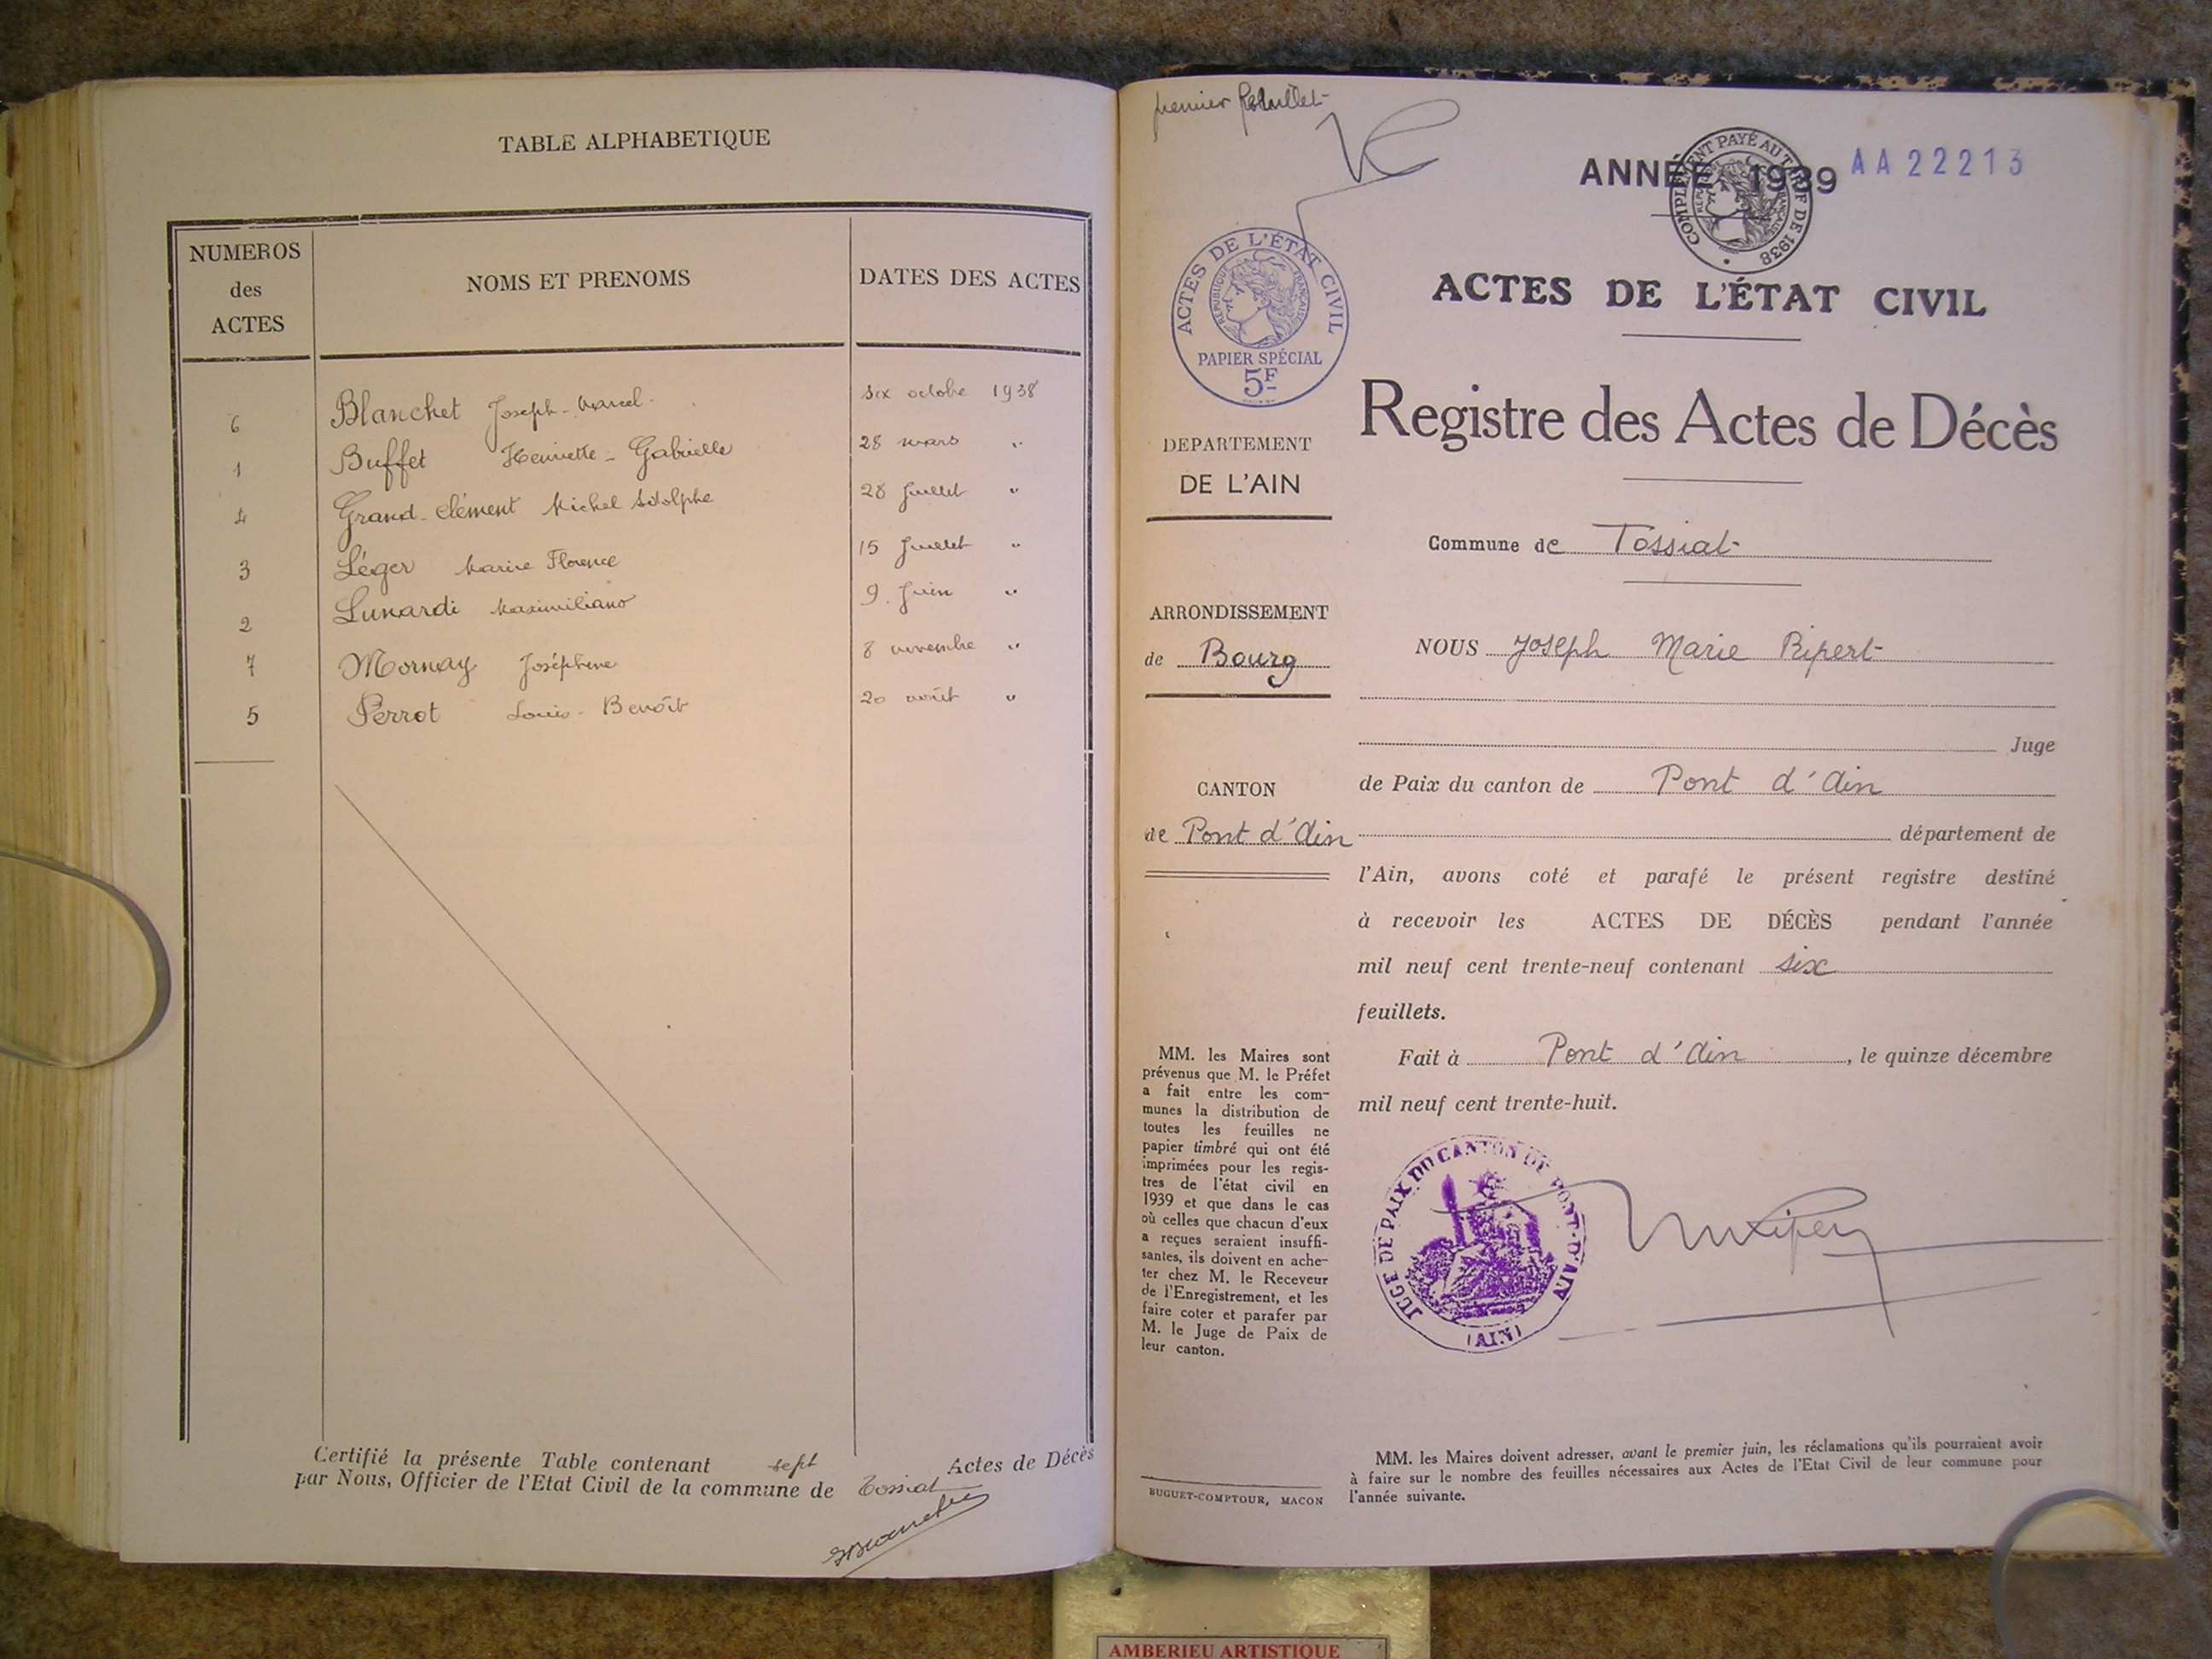 TABLE ALPHABETIQUE
NUMEROS des ACTES
NOMS ET PRENOMS
DATES DES ACTES
6 Blanchet Joseph-Marcel six octobre 1938
1 Buffet Henriette-Gabrielle 28 mars "
4 Grand-Clément Michel Adolphe 28 Juillet "
3 Léger Marie Florence 15 Juillet "
2 Lunardi Maximiliano 9. Juin "
7 Mornay Joséphine 8 novembre "
5 Perrot Louis-Benoît 20 août "
Certifié la présente Table contenant sept Actes de Décès
par Nous, Officier de l'Etat Civil de la commune de Tossiat
premier feuillet
ANNÉE 1939 AA22213
COMPLÉMENT PAYÉ AU TARIF DE 1938
RÉPUBLIQUE FRANÇAISE
ACTES DE L'ÉTAT CIVIL
RÉPUBLIQUE FRANÇAISE
PAPIER SPÉCIAL
5F
DEPARTEMENT
DE L'AIN
ARRONDISSEMENT
de Bourg
CANTON
de Pont d'Ain
MM. les Maires sont
prévenus que M. le Préfet
a fait entre les com-
munes la distribution de
toutes les feuilles ne
papier timbré qui ont été
imprimées pour les regis-
tres de l'état civil en
1939 et que dans le cas
où celles que chacun d'eux
a reçues seraient insuffi-
santes, ils doivent en ache-
ter chez M. le Receveur
de l'Enregistrement, et les
faire coter et parafer par
M. le Juge de Paix de
leur canton.
BUGUET-COMPTOUR, MACON
ACTES DE L'ÉTAT CIVIL
Registre des Actes de Décès
Commune de Tossiat
NOUS Joseph Marie Ripert
Juge
de Paix du canton de Pont d'Ain
département de
l'Ain, avons coté et parafé le présent registre destiné
à recevoir les ACTES DE DÉCÈS pendant l'année
mil neuf cent trente-neuf contenant six
feuillets.
Fait à Pont d'Ain, le quinze décembre
mil neuf cent trente-huit.
JUGE DE PAIX DU CANTON DE PONT-D'AIN
(AIN)
MM. les Maires doivent adresser, avant le premier juin, les réclamations qu'ils pourraient avoir
à faire sur le nombre des feuilles nécessaires aux Actes de l'Etat Civil de leur commune pour
l'année suivante.
AMBERIEU ARTISTIQUE